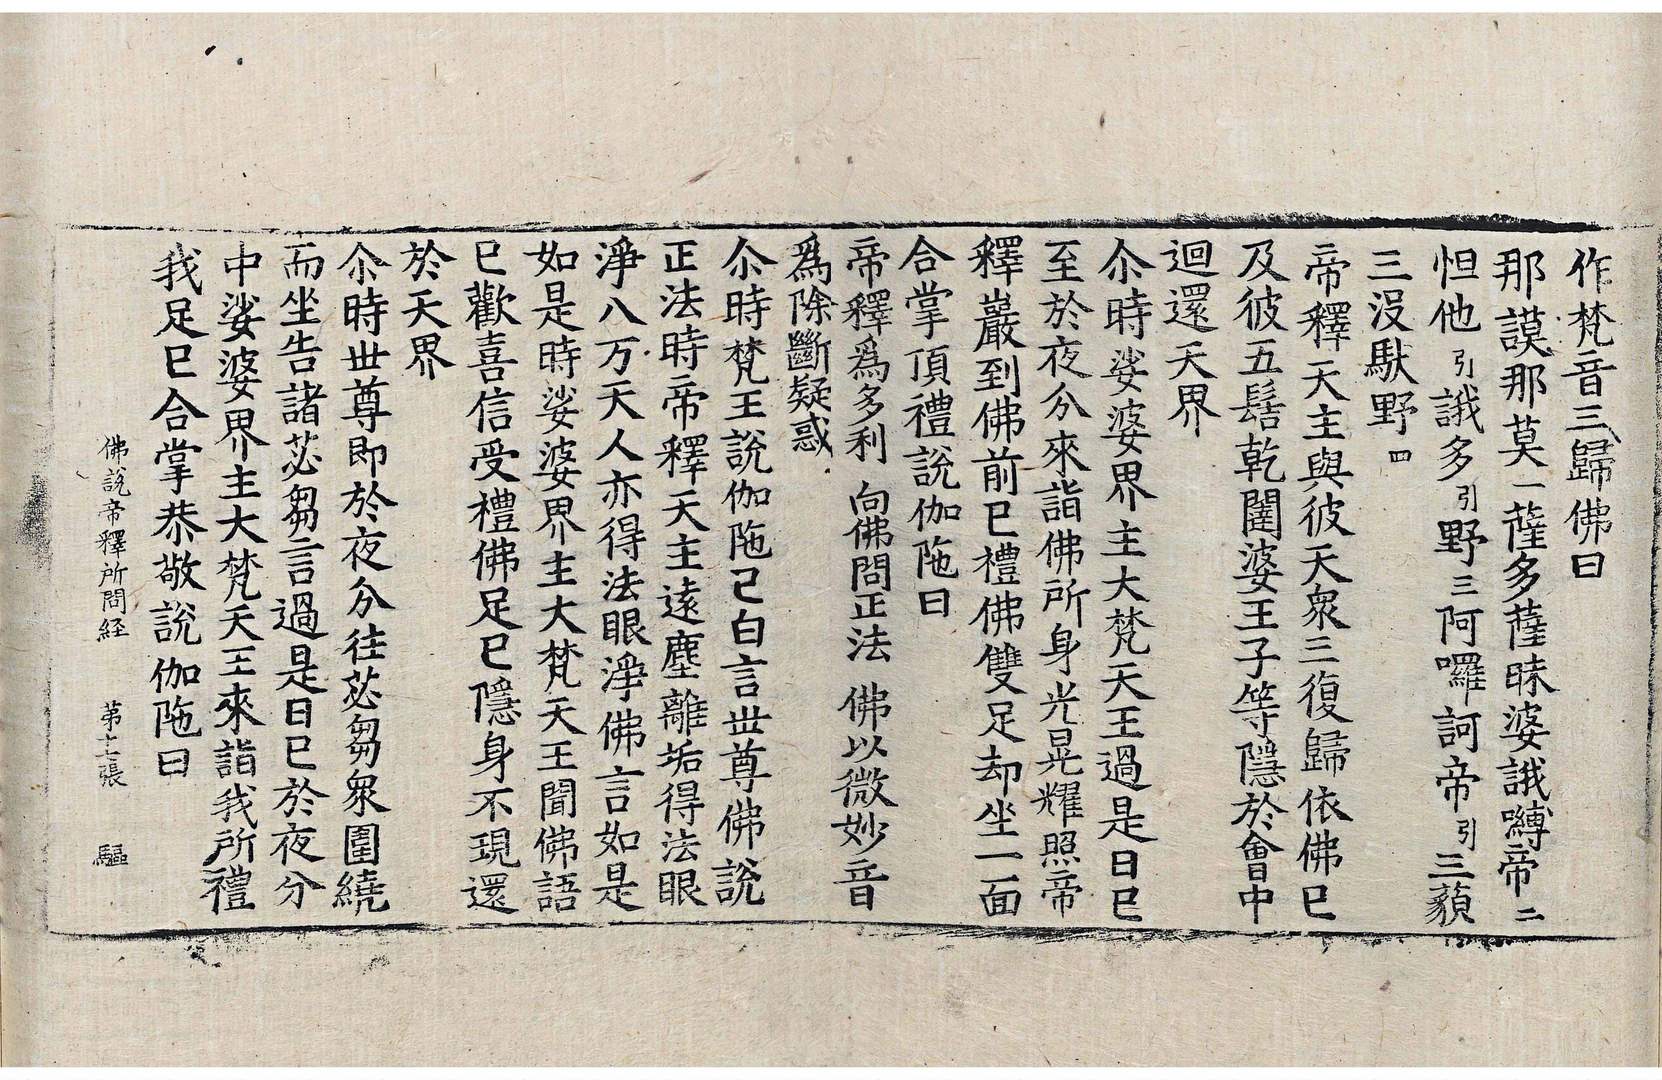 作梵音三歸佛曰
那謨那莫一薩多薩昧婆誐嚩帝二
怛他引誐多引野三阿囉訶帝引三藐
三沒馱野四
帝釋天主與彼天衆三復歸依佛已
及彼五髻乾闥婆王子等隱於會中
迴還天界
尒時娑婆界主大梵天王過是日已
至於夜分來詣佛所身光晃耀照帝
釋巖到佛前已禮佛雙足却坐一面
合掌頂禮說伽陁曰
帝釋爲多利 向佛問正法 佛以微妙音
爲除斷疑惑
尒時梵王說伽陁已白言世尊佛說
正法時帝釋天主遠塵離垢得法眼
淨八万天人亦得法眼淨佛言如是
如是時娑婆界主大梵天王聞佛語
已歡喜信受禮佛足已隱身不現還
於天界
尒時世尊即於夜分往苾芻衆圍繞
而坐告諸苾芻言過是日已於夜分
中娑婆界主大梵天王來詣我所禮
我足已合掌恭敬說伽陁曰
佛說帝釋所問経 第十二張 驅